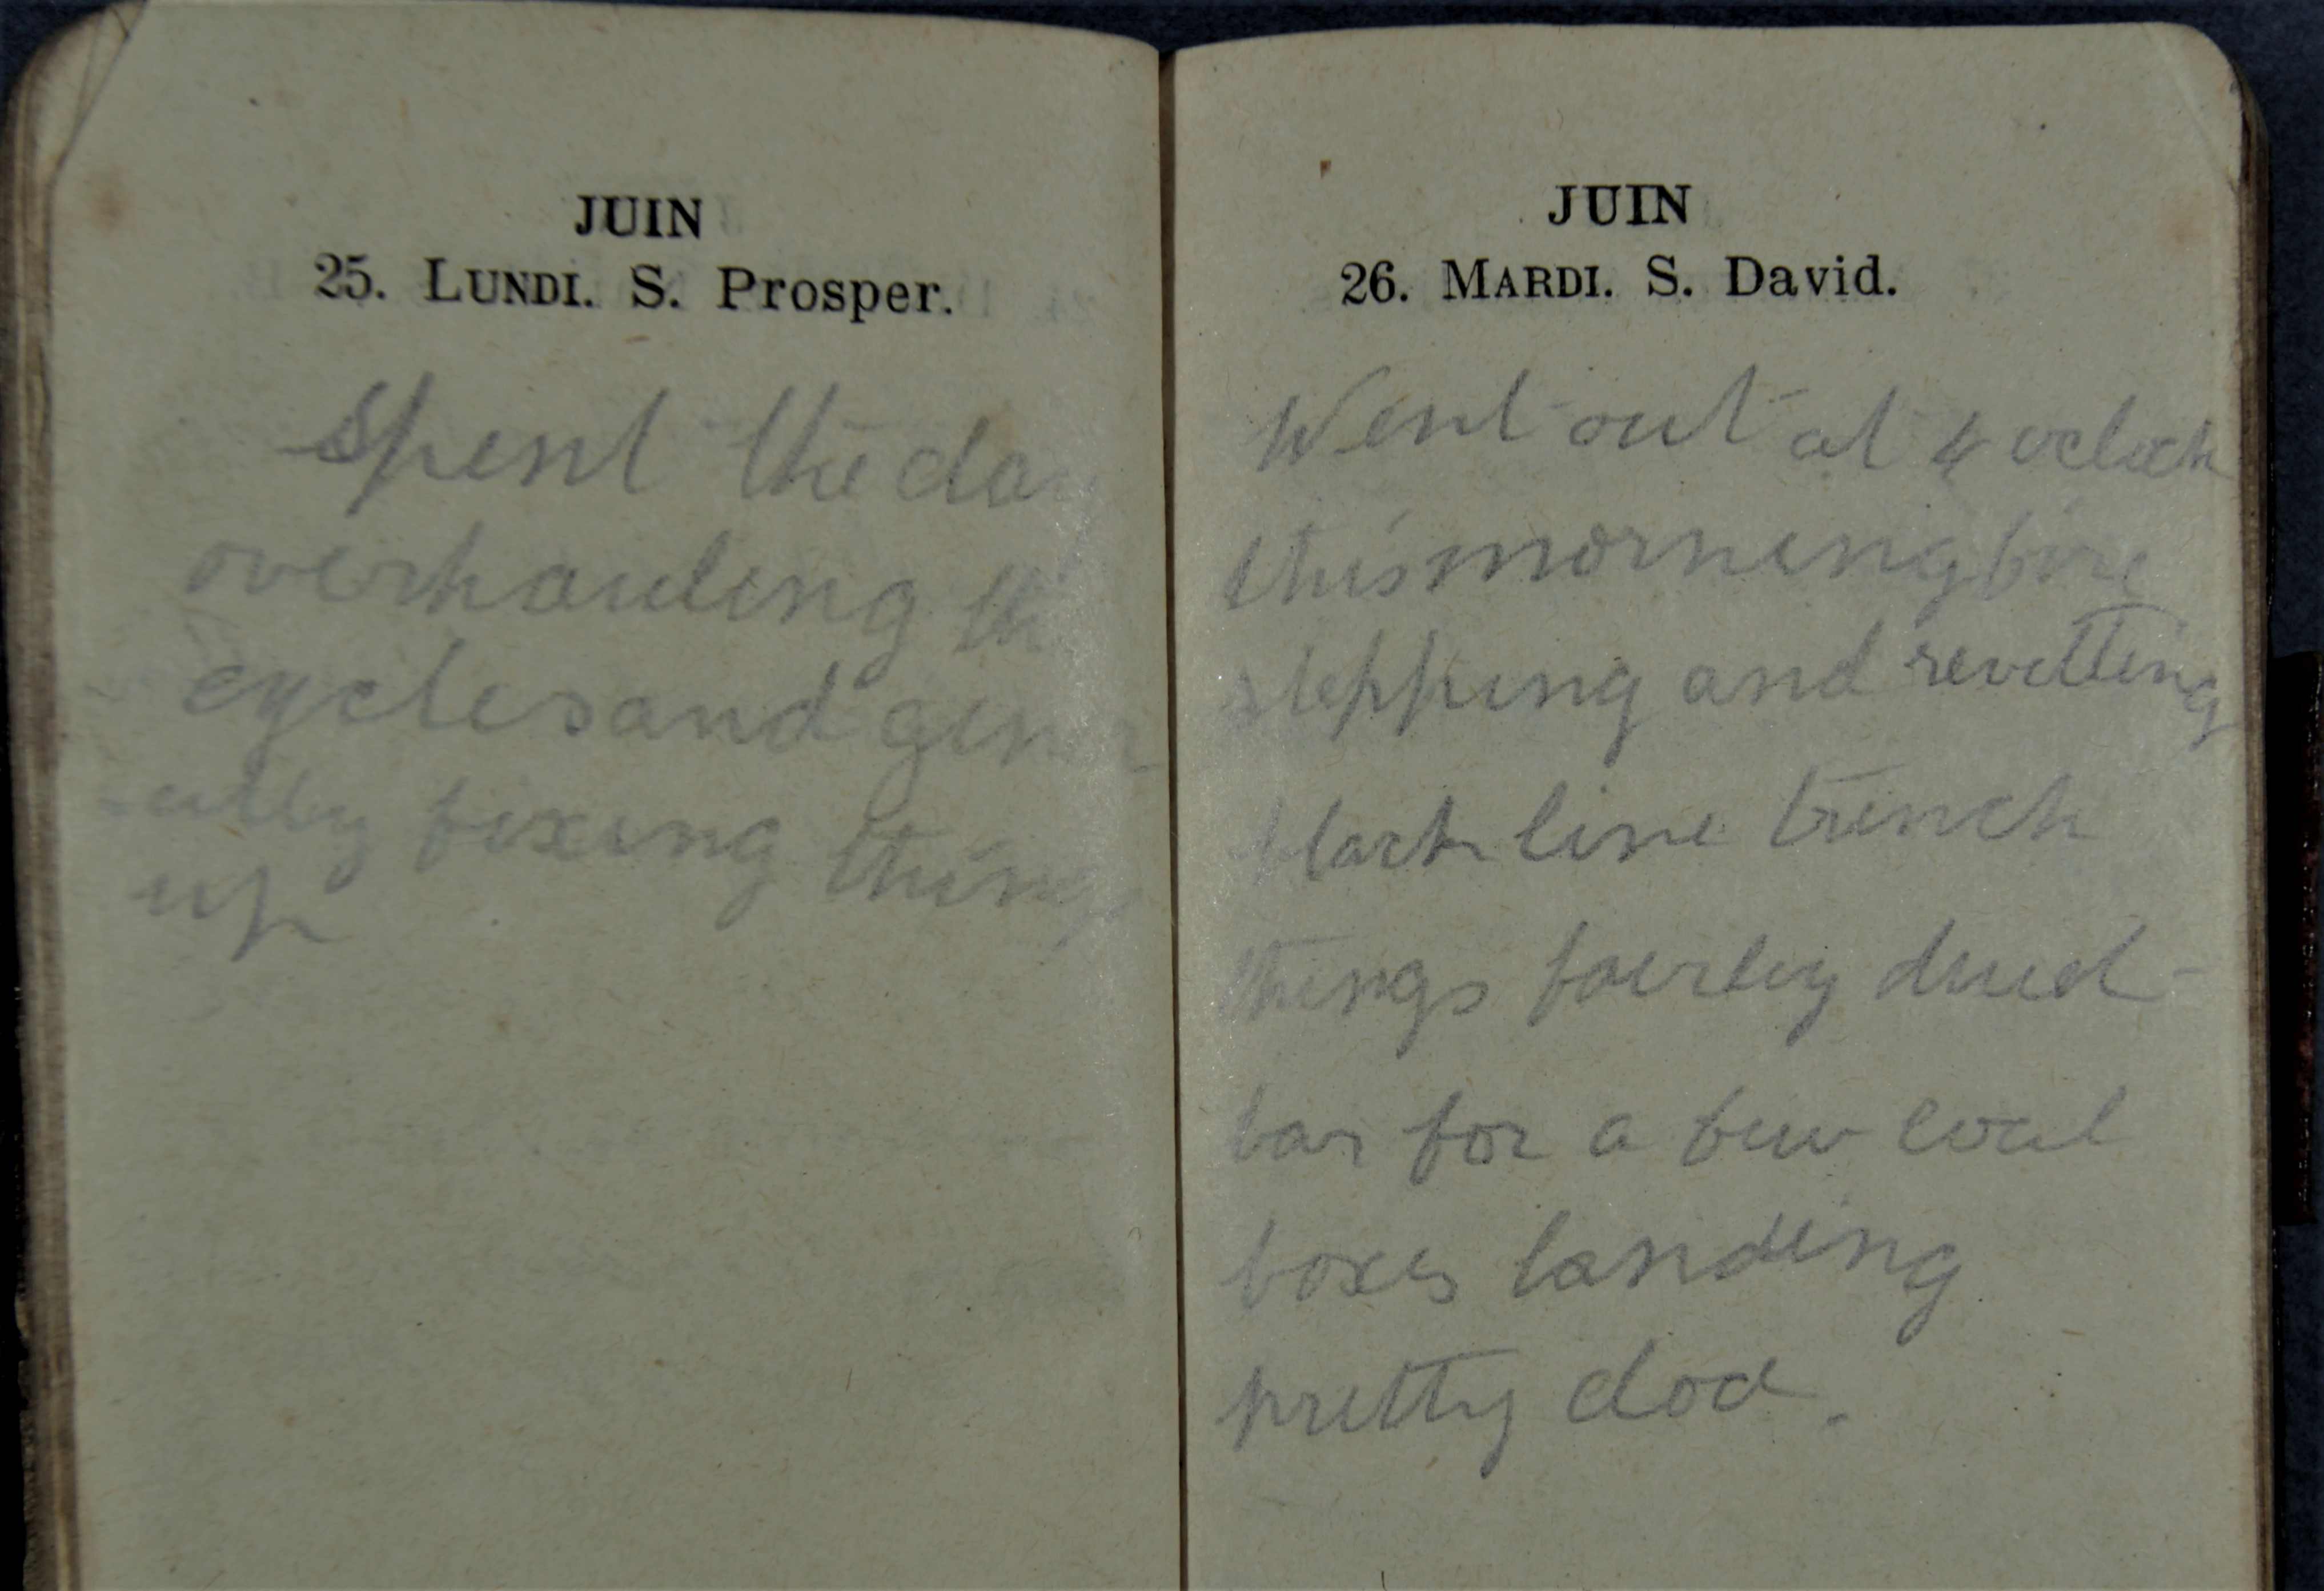 JUIN
25. LUNDI. S. Prosper.
Spent the day
overhauling the
cycles and gener
-ally fixing things
up
JUIN
26. MARDI. S. David.
Went out at 4 oclock
this morning fire
stepping and revetting
black line trench
things fairly
bar for a few coal
boxes landing
pretty